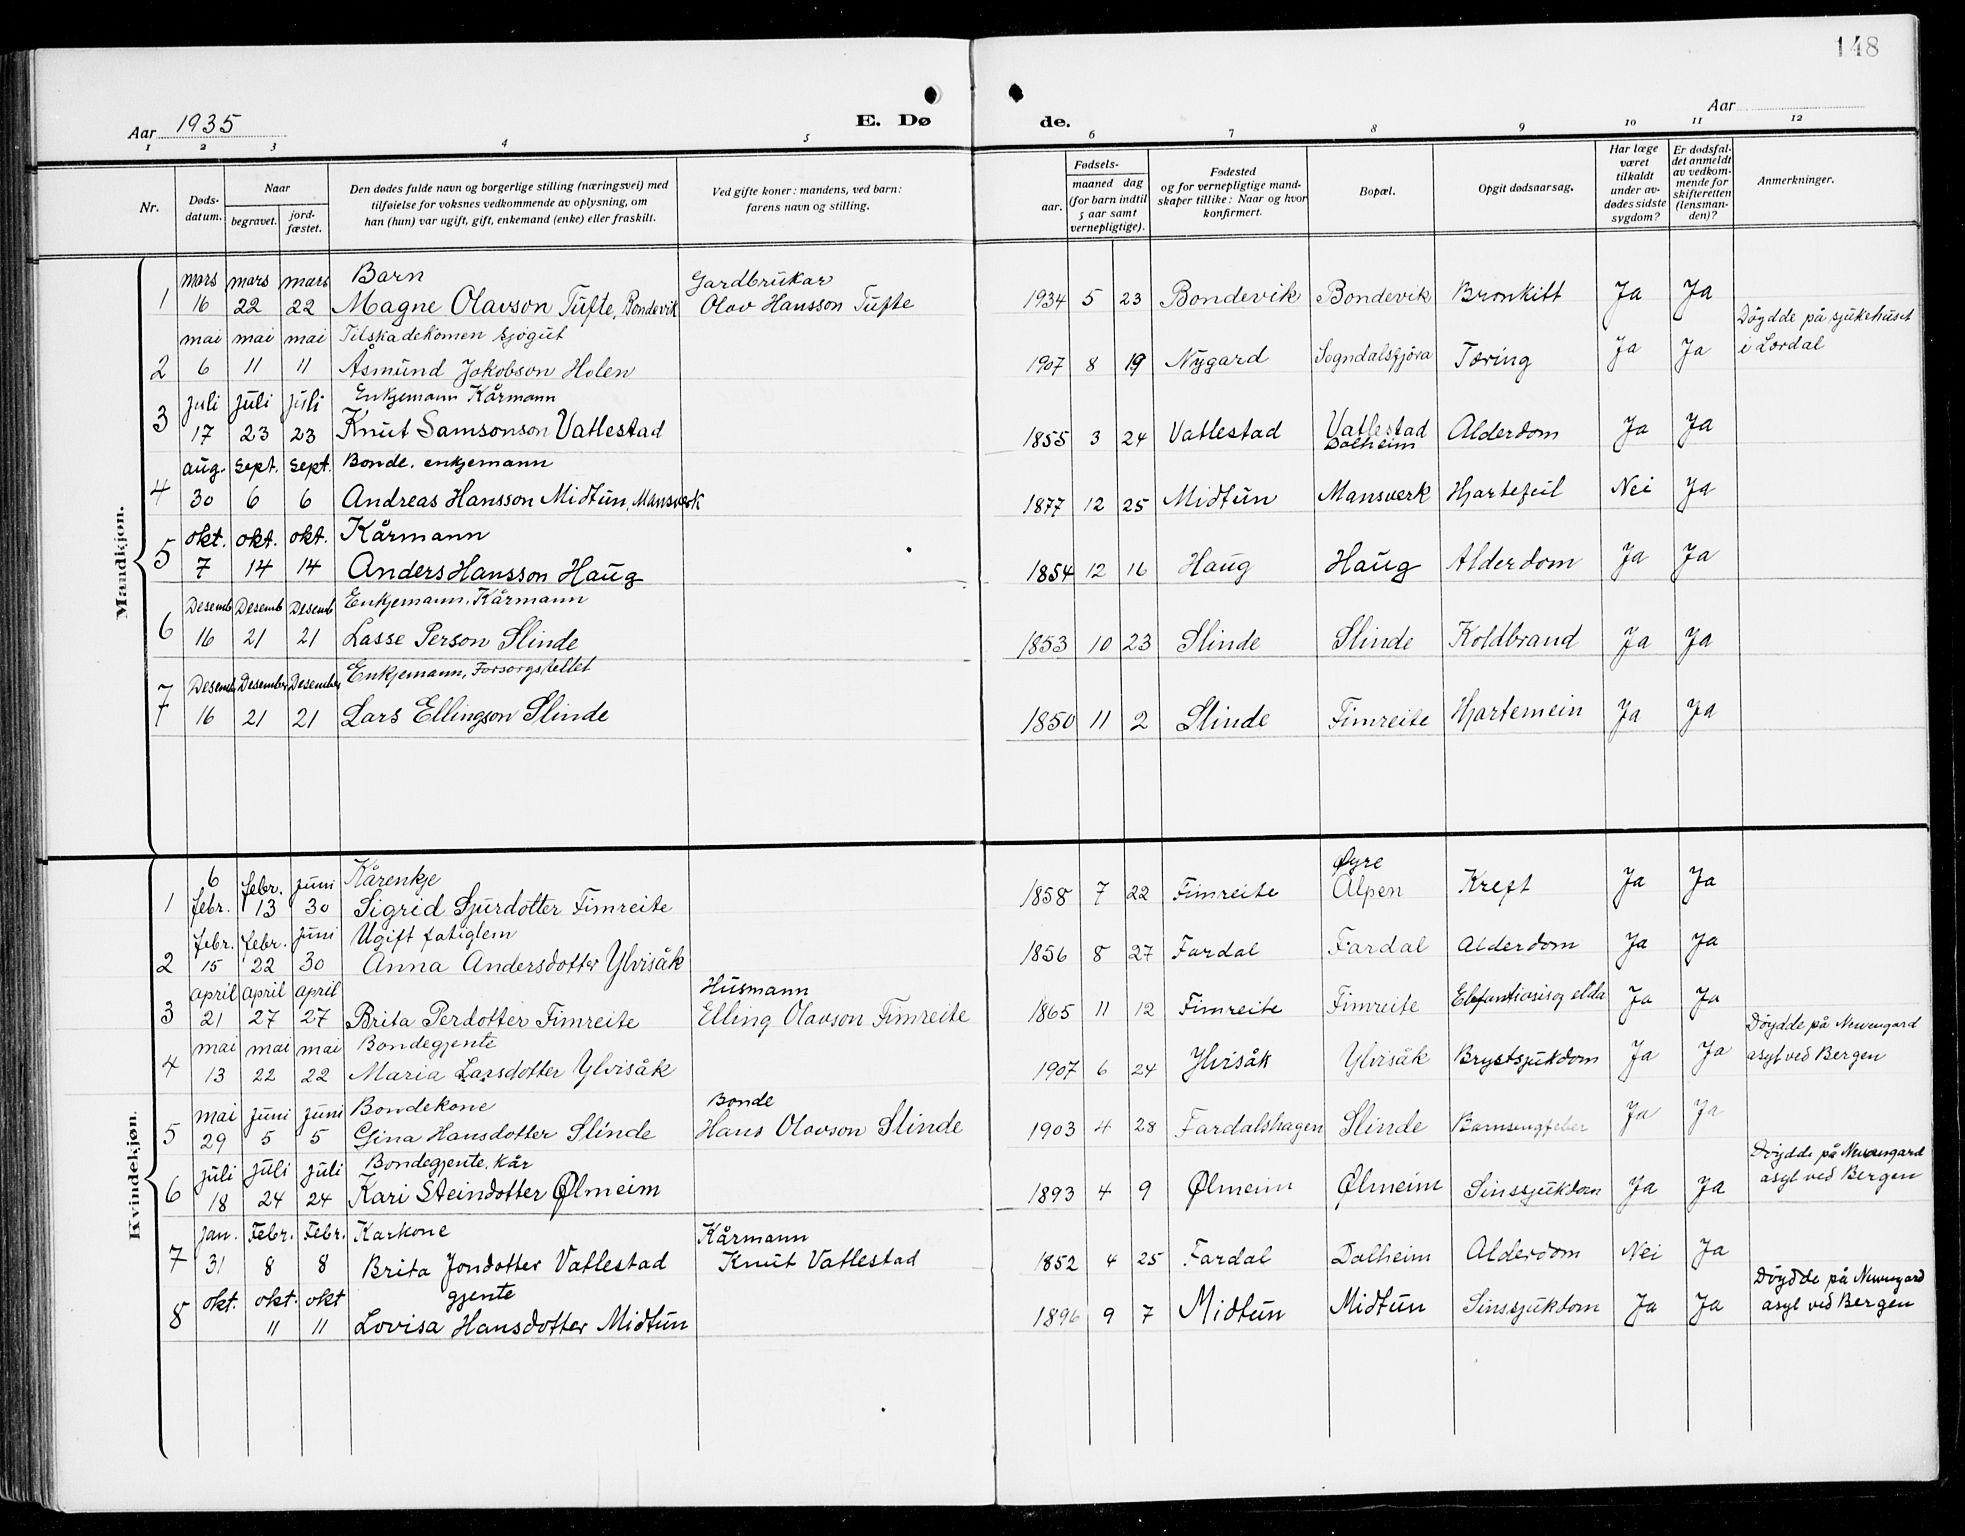 148
Aar 1935
E. Dø
de.
Aar
1 2 3 4 5 6 7 8 9 10 11 12
Nr.
Døds-
datum.
Naar
begravet.
jord-
fæstet.
Den dødes fulde navn og borgerlige stilling (næringsvei) med
tilføielse for voksnes vedkommende av oplysning, om
han (hun) var ugift, gift, enkemand (enke) eller fraskilt.
Ved gifte koner: mandens, ved barn:
farens navn og stilling.
Fødsels-
aar.
maaned dag
(for barn indtil
5 aar samt
vernepligtige).
Fødested
og for vernepligtige mand-
skaper tillike: Naar og hvor
konfirmert.
Bopæl.
Opgit dødsaarsag.
Har læge
været
tilkaldt
under av-
dødes sidste
sygdom?
Er dødsfal-
det anmeldt
av vedkom-
mende for
skifteretten
(lensman-
den)?
Anmerkninger.
Mandkjøn.
mars mars mars Barn Gardbrukar
1 16 22 22 Magne Olavson Tufte, Bondevik Olav Hansson Tufte 1934 5 23 Bondevik Bondevik Bronkitt Ja Ja
mai mai mai Tilskadekomen sjøgut Døydde på sjukehuset
2 6 11 11 Åsmund Jakobson Holen 1907 8 19 Nygard Sogndalsfjøra Tæring Ja Ja i Lærdal
juli juli juli Enkjemann Kårmann
3 17 23 23 Knut Samsonson Vatlestad 1855 3 24 Vatlestad Vatlestad Alderdom Ja Ja
Dalheim
aug. sept. sept. Bonde, enkjemann
4 30 6 6 Andreas Hansson Midtun, Mansverk 1877 12 25 Midtun Mansverk Hjartefeil Nei Ja
okt. okt. okt. Kårmann
5 7 14 14 Anders Hansson Haug 1854 12 16 Haug Haug Alderdom Ja Ja
Desemb Desemb Desemb Enkjemann, Kårmann
6 16 21 21 Lasse Person Slinde 1853 10 23 Slinde Slinde Koldbrand Ja Ja
Desemb Desember Desember Enkjemann, Forsorgstellet
7 16 21 21 Lars Ellingson Slinde 1850 11 2 Slinde Fimreite Hjartemein Ja Ja
Kvindekjøn.
6 febr. juni Kårenkje Øyre
1 febr. 13 30 Sigrid Sjurdotter Fimreite 1858 7 22 Fimreite Alpen Kreft Ja Ja
febr. febr. juni Ugift fatiglem
2 15 22 30 Anna Andersdotter Ylvisåk 1856 8 27 Fardal Fardal Alderdom Ja Ja
april april april Husmann
3 21 27 27 Brita Perdotter Fimreite Elling Olavson Fimreite 1865 11 12 Fimreite Fimreite Elefantiasis og elda Ja Ja
mai mai mai Bondegjente Døydde på Nevengard
4 13 22 22 Maria Larsdotter Ylvisåk 1907 6 24 Ylvisåk Ylvisåk Brystsjukdom Ja Ja asyl ved Bergen
mai juni juni Bondekone Bonde
5 29 5 5 Gina Hansdotter Slinde Hans Olavson Slinde 1903 4 28 Fardalshagen Slinde Barnsengfeber Ja Ja
juli juli juli Bondegjente, kår Døydde på Nevengard
6 18 24 24 Kari Steindotter Ølmeim 1893 4 9 Ølmeim Ølmeim Sinssjukdom Ja Ja asyl ved Bergen
jan. Febr. Febr. Karkone Kårmann
7 31 8 8 Brita Jondotter Vatlestad Knut Vatlestad 1852 4 25 Fardal Dalheim Alderdom Nei Ja
okt. okt. okt gjente Døydde på Nevengard
8 11 11 Lovisa Hansdotter Midtun 1896 9 7 Midtun Midtun Sinssjukdom Ja Ja asyl ved Bergen